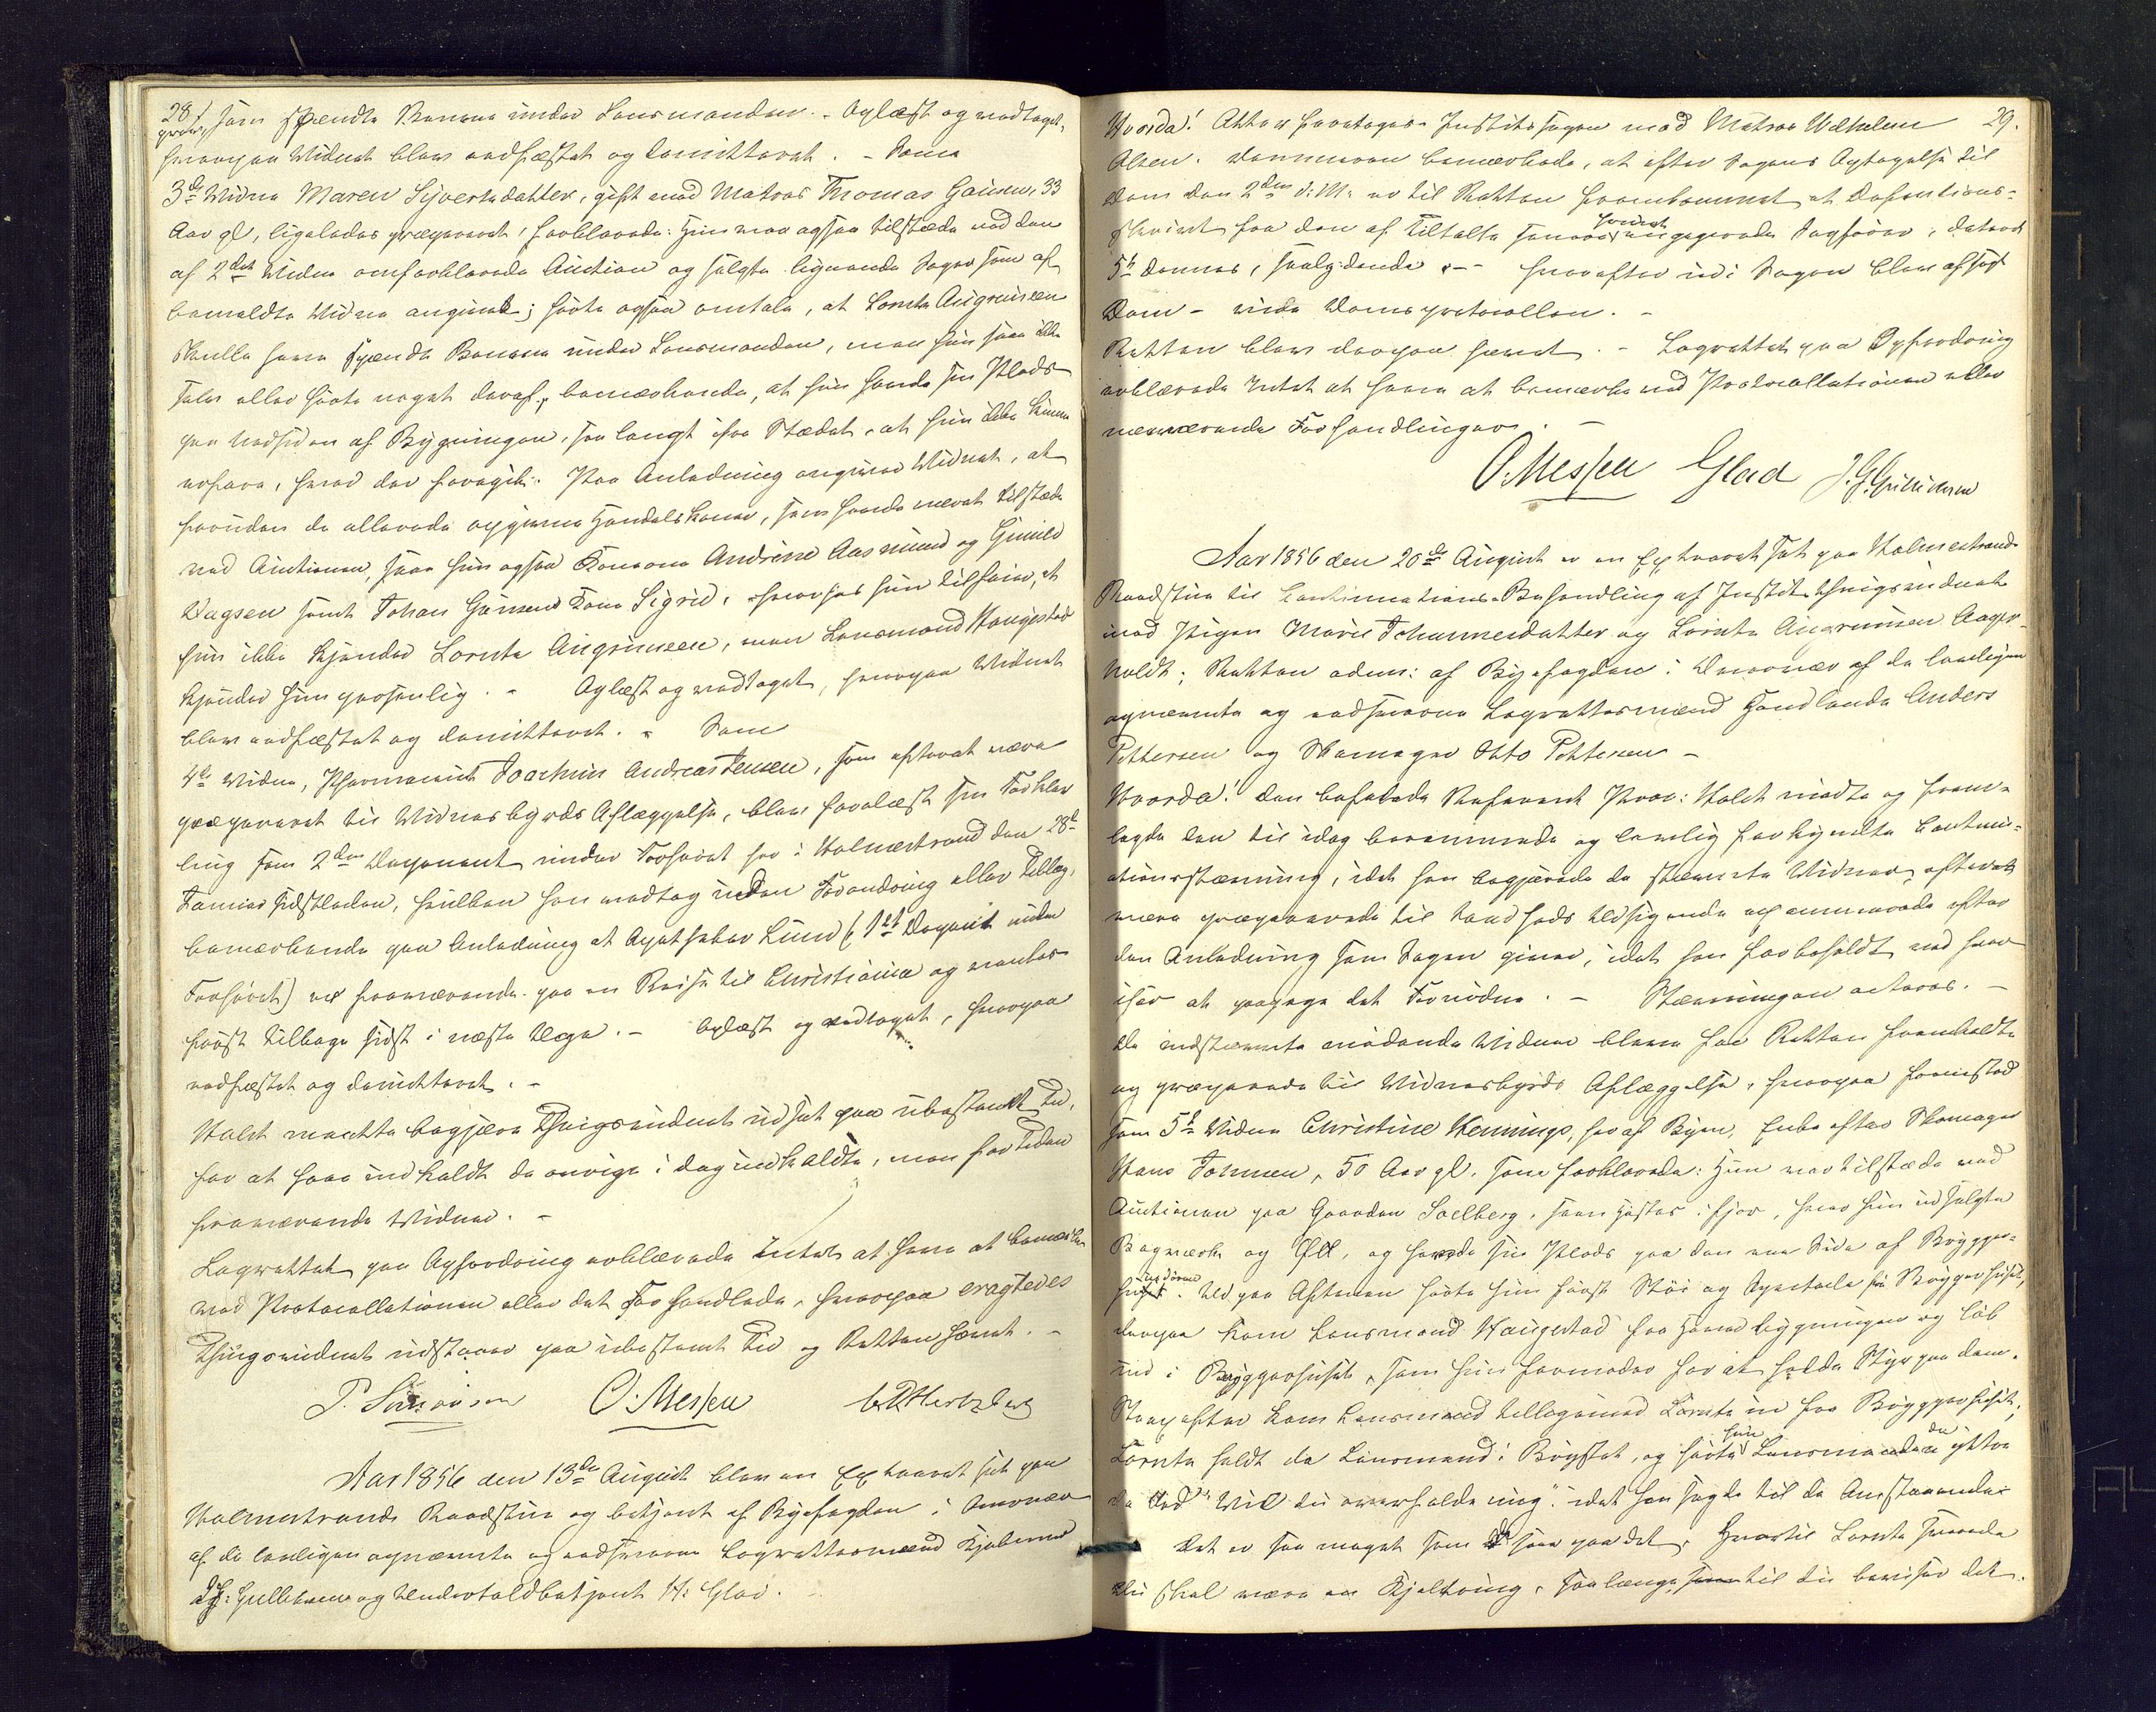 28
som spændte Benene under Lensmanden. - Oplæst og vedtaget,
hvorpaa Vidnet blev eedfæstet og demitteret. - Som
3de Vidne Maren Syvertsdatter, gift med Matros Thomas Hansen, 33
Aar gl, ligeledes præpareret, forklarede: Hun var ogsaa tilstæde ved den
af 2det Vidne omforklarede Auction og solgte lignende Sager som af
bemeldte Vidne angivet; hørte ogsaa omtale, at Lornts Angrimsen
skulle have spændt Benene under Lensmanden, men hun saae ikke
selv eller hørte noget deraf, bemærkende, at hun havde sin Plads
paa Nordsiden af Bygningen, saa langt ifra Stædet, at hun ikke kunne
erfare, hvad der foregik. Paa Anledning angiver Vidnet, at
foruden de allerede opgivne Handelskoner, som havde været tilstæde
ved Auctionen, saae hun ogsaa Konerne Andrine Aasmund og Gunild
Dagsen samt Johan Hansens Kone Sigrid, hvorhos hun tilføier, at
hun ikke kjender Lornts Angrimsen, men Lensmand Haugestad
kjender hun personlig. - Oplæst og vedtaget, hvorpaa Vidnet
blev eedfæstet og demitteret. - Som
4de Vidne, Pharmaceut Joachim Andreas Jensen, som efterat være
præpareret til Vidnesbyrds Aflæggelse, blev forelæst sin Forklar
ling som 2den Deponent under Forhøret her i Holmestrand den 28de
Januar sidstleden, hvilken han vedtog uden Forandring eller Tillæg,
bemærkende paa Anledning at Apotheker Lund (1ste Deponent under
Forhøret) er fraværende paa en Reise til Christiania og ventes
først tilbage sidst i næste Uge. - Oplæst og vedtaget, hvorpaa
eedfæstet og demitteret. -
Holst maatte begjære Thingsvidnet udsat paa ubestemt Tid,
for at faae indkaldt de øvrige i dag indkaldte, men for Tiden
fraværende Vidner. -
Lagrettet paa Opfordring erklærede Intet at have at bemærke
ved Protocollationen eller det Forhandlede, hvorpaa eragtedes
Thingsvidnet udstaaer paa ubestemt Tid og Retten hævet. -
P. Simonsen O. Messen C. D. Hertzberg
Aar 1856 den 13de August blev en Extraret sat paa
Holmestrands Raadstue og betjent af Byefogden i Overvær
af de lovligen opnævnte og eedsvorne Lagrettesmænd Kjøbmand
og Undertoldbetjent H: Glad.
29.
Hvorda! Atter foretages Justitssagen mod Matros Wilhelm
Olsen. Dommeren bemærkede, at efter Sagens Optagelse til
Dom den 2den d: M: er til Retten fremkommet et Defensions-
skrivt fra den af Tiltalte engagerede Sagfører, dateret
5te dennes, saalydende: - hvorefter udi Sagen blev afsagt
Dom - vide Domsprotocollen. -
Retten blev derpaa hævet. - Lagrettet paa Opfordring
erklærede Intet at have at bemærke ved Protocollationen eller
nærværende Forhandlinger. -
O. Messen Glad
Aar 1856 den 20de August er en Extraret sat paa Holmestrands
Raadstue til Continuations-Behandling af Justits-Thingsvidnet
mod Pigen Maria Johannesdatter og Lornts Angrimsen Aager-
holdt; Retten adm: af Byefogden i Overvær af de lovligen
opnævnte og eedsvorne Lagrettesmænd Handlende Anders
Pettersen og Skomager Otto Pettersen -
Hvorda! den befalede Referent Proc: Holst mødte og frem-
lagde den til idag berammede og lovlig forkyndte Continu-
ationsstævning, idet han begjærede de stævnte Vidner, efterat
være præparerede til Sandheds Udsigende examinerede efter
den Anledning som Sagen giver, idet han forbeholdt ved hver
især at paapege det Fornødne. - Stævningen acteres. -
De indstævnte mødende Vidner bleve for Retten fremkaldte
og præparerede til Vidnesbyrds Aflæggelse, hvorpaa fremstod
som 5te Vidne Christine Hennings, her af Byen, Enke efter Skomager
Hans Johnsen, 50 Aar gl. som forklarede: Hun var tilstæde ved
Auctionen paa Gaarden Solberg, som holdtes i fjor, hvor hun udsolgte
Bagværk og Øll, og havde sin Plads paa den ene Side af Brygger-
huus. Ud paa Aftenen hørte hun først Støi og Spectakle fra Bryggerhuset,
derpaa kom Lensmand Haugestad fra Hovedbygningen og løb
ind i Bryggerhuset, som hun formoder for at holde Styr paa dem.
Strax efter kom Lensmand tilligemed Lornts ud fra Bryggerhuset,
Lornts holdt da Lensmand i Brystet, og hørte hun Lensmanden da yttre
de Ord "Vil du overfalde mig" idet han sagde til de Omstaaende:
Det er saa meget som de saae paa det, Hvortil Lornts svarede
Du skal være en Kjeltring, saalænge til du beviser det.